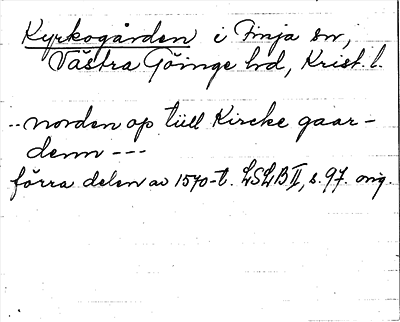 Kyrkogården i Finja sn,
Västra Göinge hd, Krist. l.
-- norden op tüll Kircke gaar-
denn ---
förra delen av 1570-t. LSLB II, s. 97. orig.